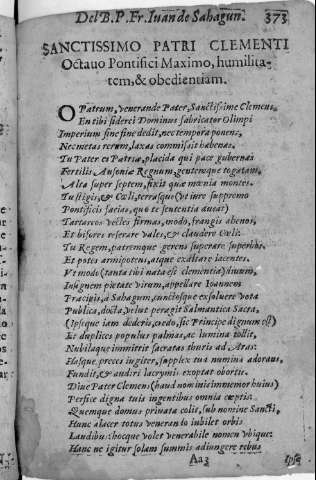 Del B. P. Fr. Iuan de Sahagun. 373
SANCTISSIMO PATRI CLEMENTI
Octauo Pontifici Maximo, humilita-
tem, & obedientiam.
O Patrum, venerande Pater, Sanctissime Clemens,
En tibi siderei Dominus fabricator Olimpi
Imperium sine fine dedit, nec tempora ponens,
Nec metas rerum, laxas commisit habenas.
Tu Pater es Patriæ, placida qui pace gubernas
Fertilis Ausoniæ Regnum, gentemque togatam,
Alta super septem, fixit quæ mœnia montes.
Tu stigis, & Cœli, terrasque (vt iure supremo
Pontificis facias, quo te sententia ducat)
Tartareos vectes firmas, modo, frangis ahenos,
Et bifores reserare vales, & claudere Cœli:
Tu Regem, patremque gerens superare superbos,
Et potes armipotens, atque exaltare iacentes.
Vt modo (tanta tibi nata est clementia) diuum,
Insignem pietate virum, appellare Ioannem
Præcipis, à Sahagun, cunctosque exsoluere vota
Publica, docta, velut peragit Salmantica Sacra,
(Ipseque iam dederis, credo, sic Principe dignum est)
Et duplices populus palmas, ac lumina tollit,
Nubilaque immittit sacratas thuris ad Aras:
Hasque preces iugiter, supplex tua numina adorans,
Fundit, & audiri lacrymis exoptat obortis.
Diue Pater Clemens (haud nominis immemor huius)
Perfice digna tuis ingentibus omnia cœptis:
Quemque domus priuata colit, sub nomine Sancti,
Hunc alacer totus veneran to iubilet orbis
Laudibus: hocque volet venerabile nomen vbique:
Hanc ne igitur solam summis adiungere rebus
Aa 3 Ipse